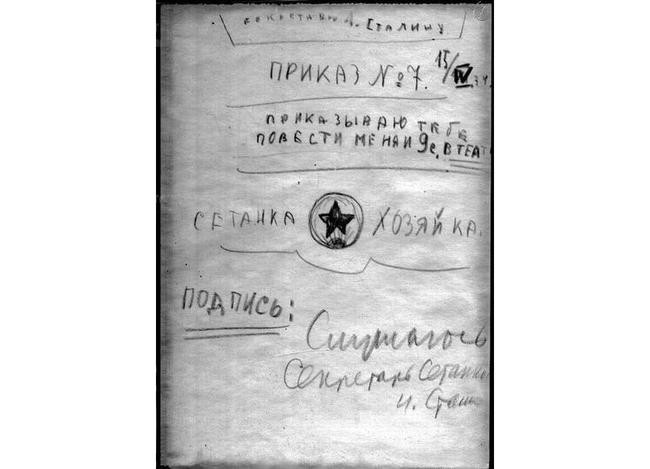 СЕКРЕТАРЮ СТАЛИНУ
ПРИКАЗ №7. 15/IV.34.
ПРИКАЗЫВАЮ ТЕБЕ
ПОВЕСТИ МЕНАИ В ТЕАТ
СЕТАНКА ХОЗЯЙКА.
ПОДПИСЬ:
Слушаюсь
Секретарь Сетанк
И. Стали